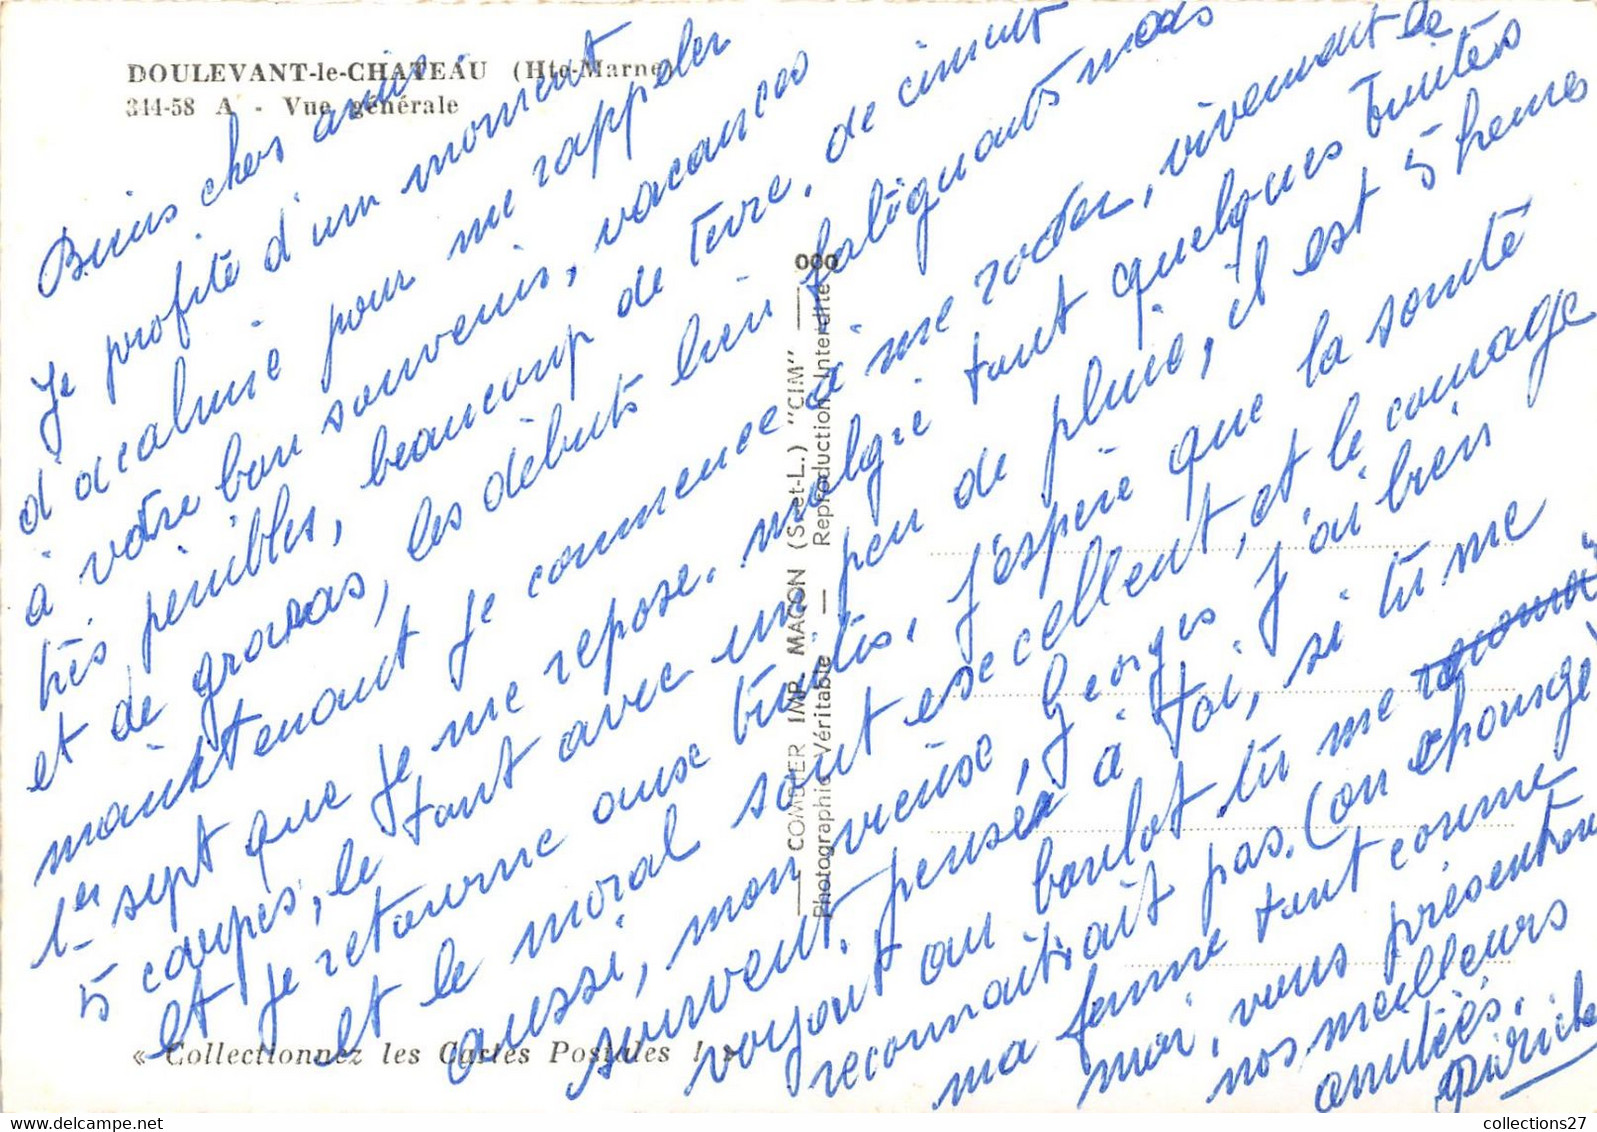 DOULEVANT-le-CHATEAU (Hte-Marne)
344-58 A - Vue générale
Biens chers amis
Je profite d'un moment
d'acalmie pour me rappeler
à votre bon souvenirs, vacances
très penibles, beaucoup de terre, de ciment
et de gravas, les débuts bien fatiguants mais
maintenant je commence à me roder, vivement le
1er sept que je me repose. malgré tout quelques truites
5 carpes, le tout avec un peu de pluie, il est 5 heures
et je retourne aux truites, j'espère que la santé
et le moral sont excellent, et le courage
aussi, mon vieux Georges j'ai bien
souvent pensée à toi, si tu me
voyant au boulot tu me
reconnaitrait pas. (on change)
ma femme tout comme
moi, vous présentons
nos meilleurs
amitiés.
COMBIER IMP. MACON (S.-et-L.) "CIM"
Photographie Véritable — Reproduction Interdite
« Collectionnez les Cartes Postales ! »
collections27